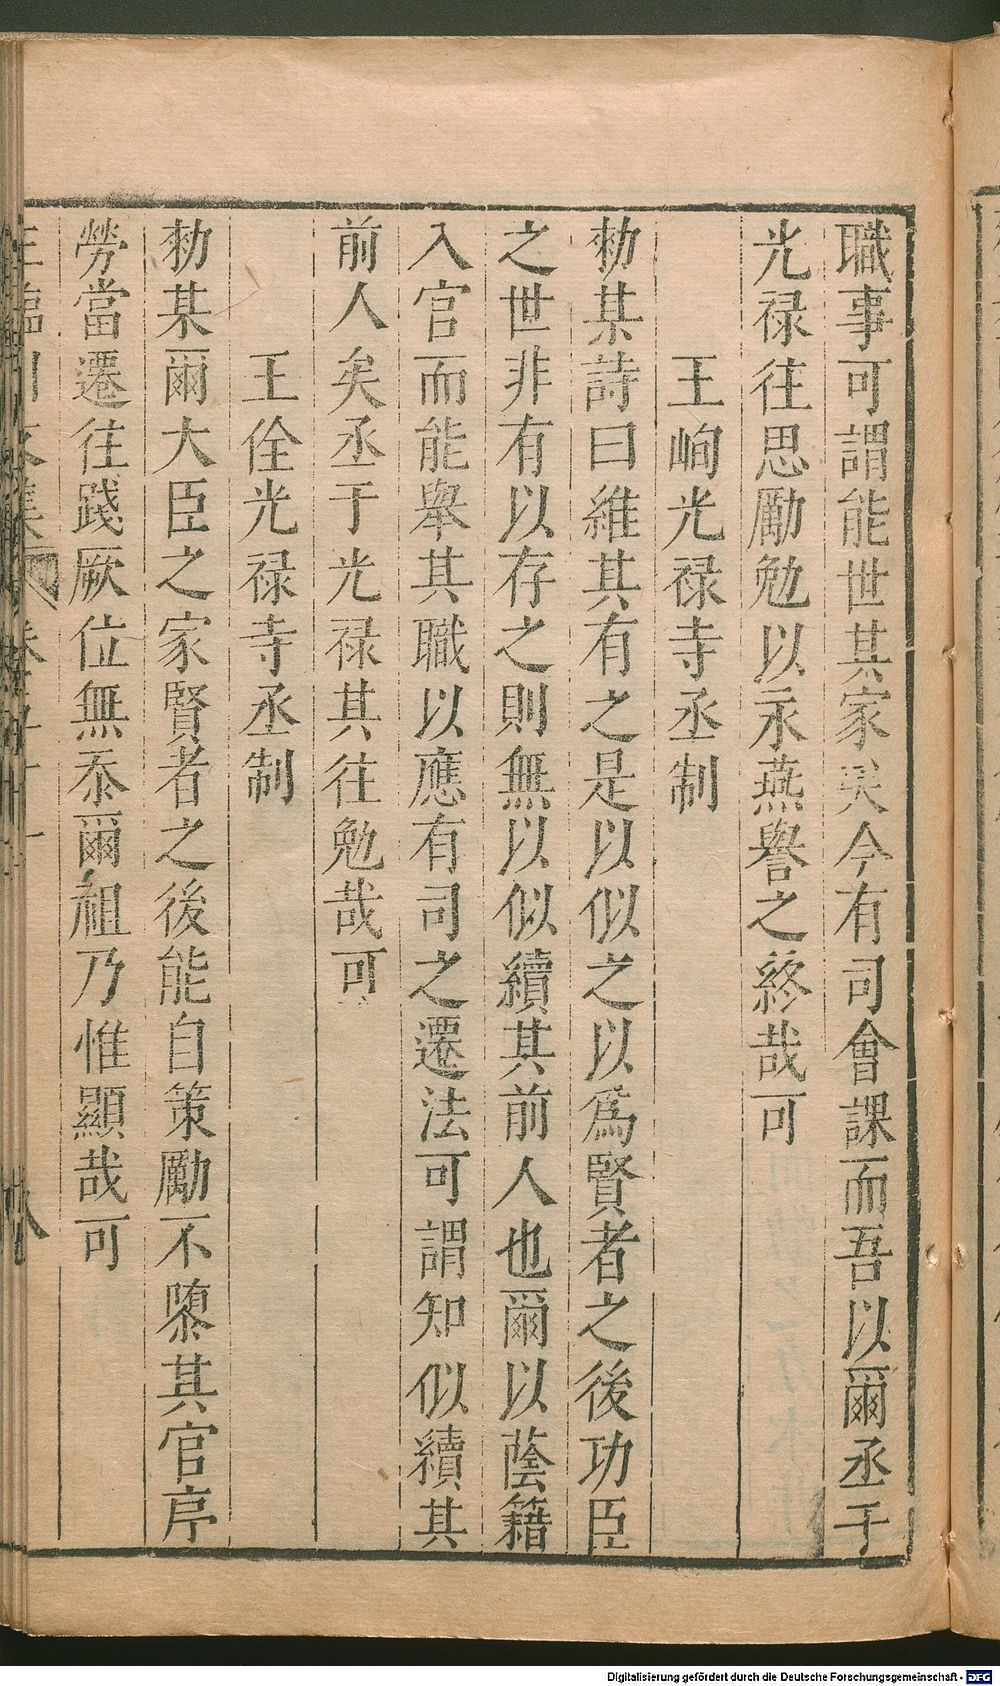 職事可謂能世其家矣今有司會課而吾以爾丞于
光禄往思勵勉以永燕譽之終哉可
王峋光禄寺丞制
勑某詩曰維其有之是以似之以爲賢者之後功臣
之世非有以存之則無以似續其前人也爾以蔭籍
入官而能舉其職以應有司之遷法可謂知似續其
前人矣丞于光禄其往勉哉可
王佺光禄寺丞制
勑某爾大臣之家賢者之後能自策勵不隳其官序
勞當遷往踐厥位無忝爾祖乃惟顯哉可
Digitalisierung gefördert durch die Deutsche Forschungsgemeinschaft - DFG